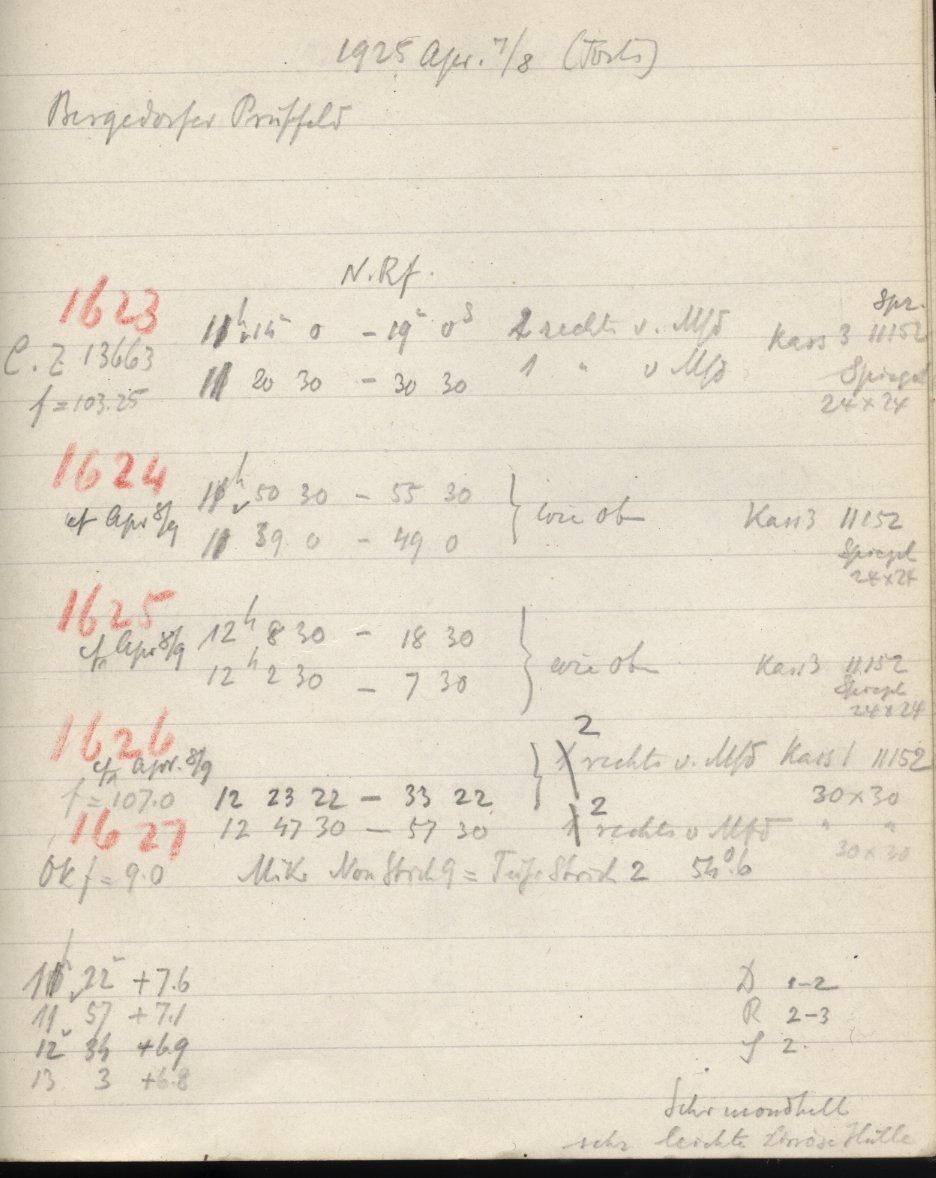 1925 Apr. 7/8 (Forts)
Bergedorfer Prüffeld
N.Rf.
1623
11h 15m 0 - 19m 0s 2 rechts v. Mfd Kass 3 Spr. 11152
C.Z 13663
11 20 30 - 30 30 1 " v Mfd Spiegel
f = 103.25 24 x 24
1624
11h 50 30 - 55 30 } wie ob Kass 3 11152
cf Apr 8/9
11 39 0 - 49 0 Spiegel
24x24
1625
12h 8 30 - 18 30 } wie ob
cf Apr 8/9
12h 2 30 - 7 30 Kass 3 11152
Spiegel
24x24
1626 2
cf Apr. 8/9 } rechts v. Mfd Kass 1 11152
f = 107.0 12 23 22 - 33 22 30x30
1627 12 47 30 - 57 30 2 rechts v Mfd " "
30x30
Ok f = 9.0 Mikr Strich 9 = Strich 2 54°.6
11h 22m +7.6 D 1-2
11 57 +7.1 R 2-3
12 34 +6.9 S 2.
13 3 +6.8
Sehr mondhell
sehr leichte Hülle